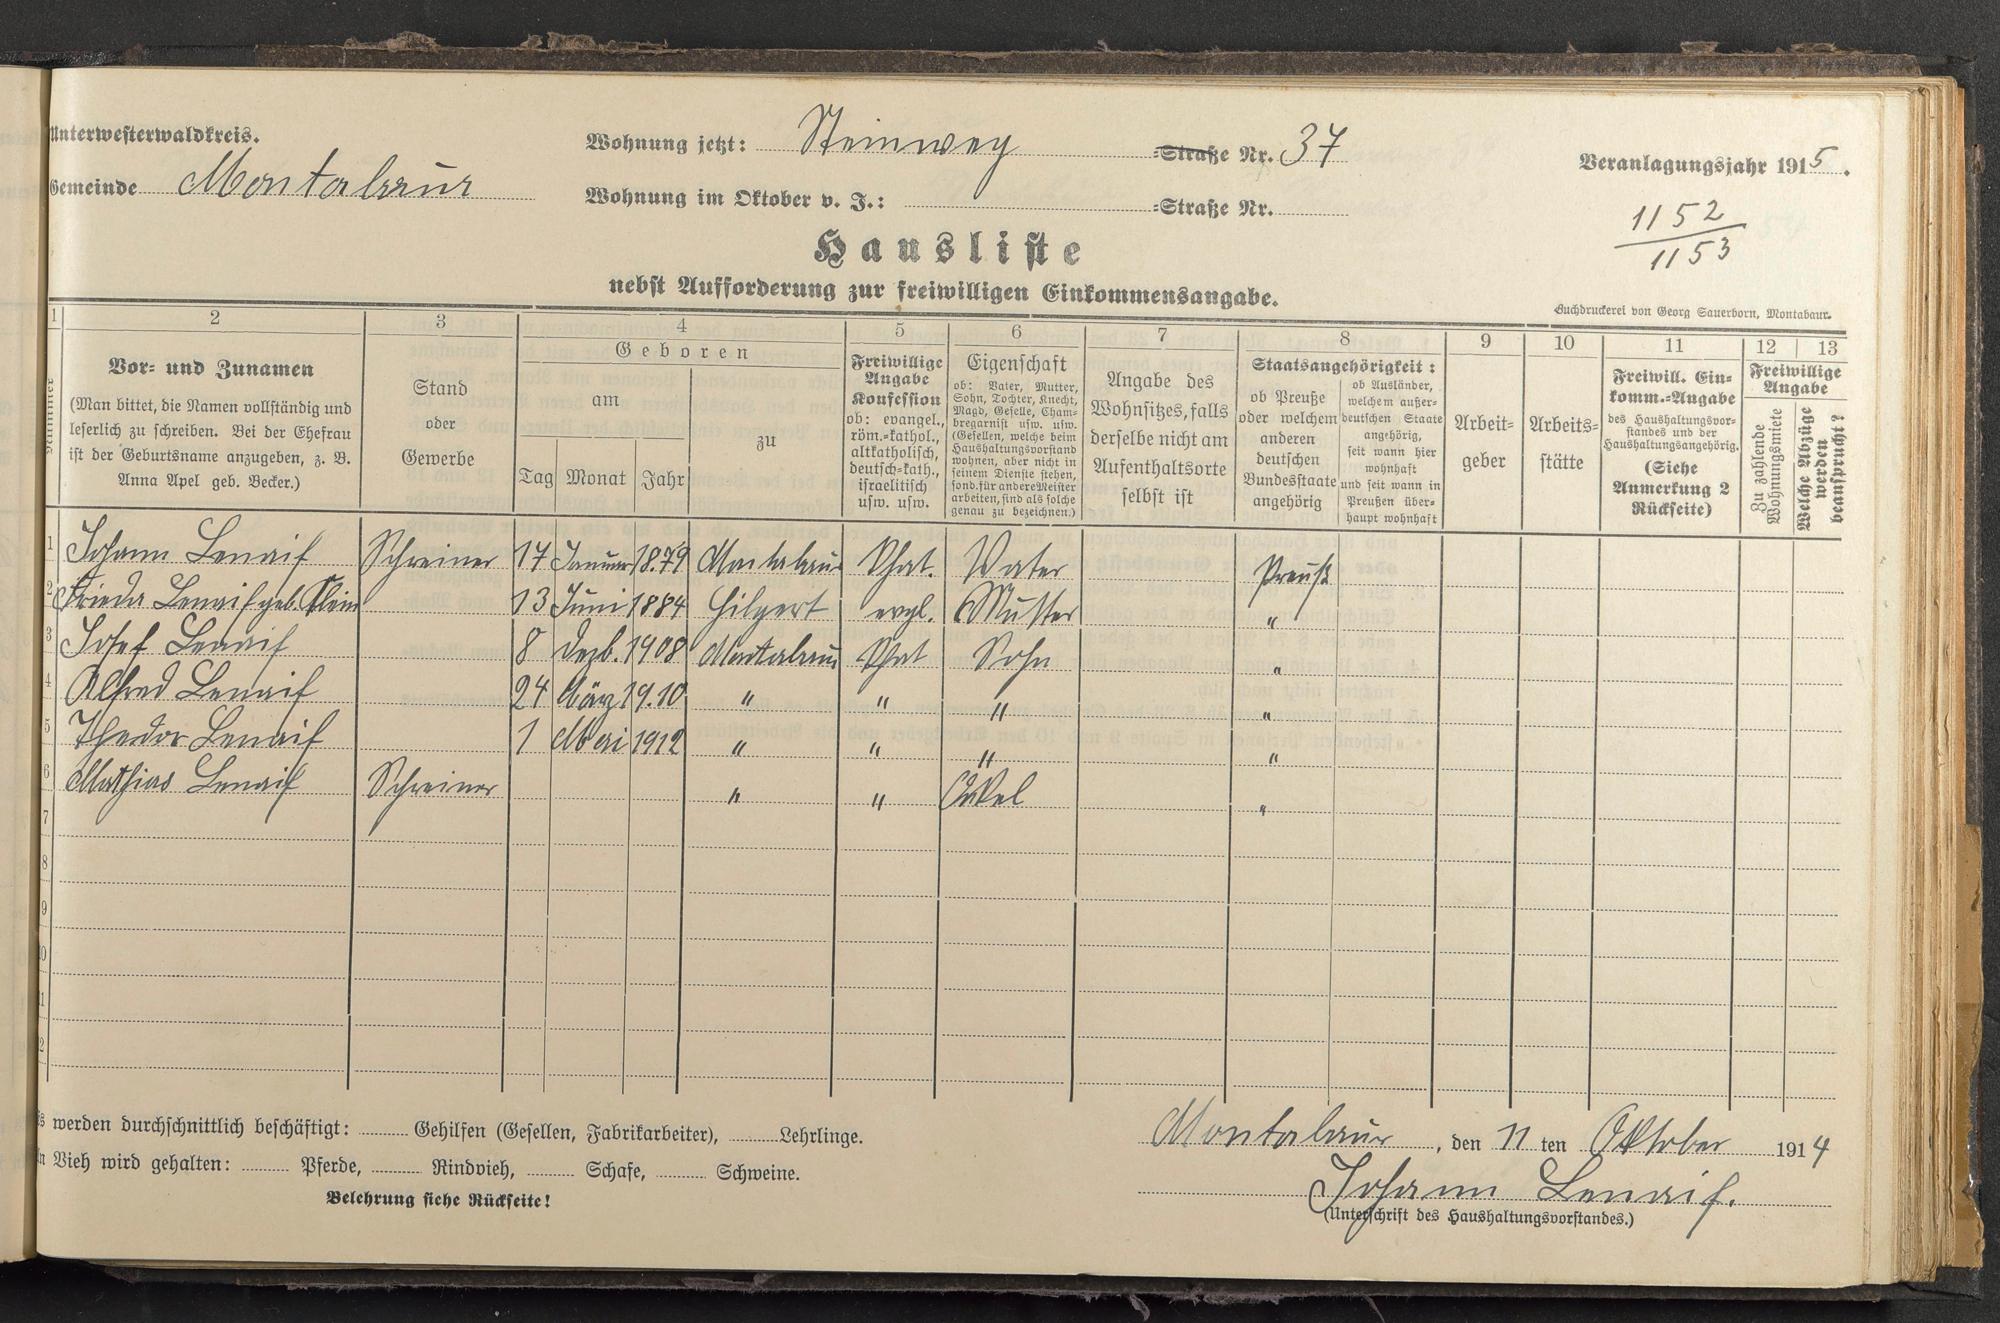 Unterwesterwaldkreis.
Gemeinde Montabaur
Wohnung jetzt: Steinweg =Straße Nr. 37
Wohnung im Oktober v. J.: =Straße Nr.
Veranlagungsjahr 1915.
1152
1153
Hausliste
nebst Aufforderung zur freiwilligen Einkommensangabe.
Buchdruckerei von Georg Sauerborn, Montabaur.
1 2 3 4 5 6 7 8 9 10 11 12 13
Nummer
Vor- und Zunamen
(Man bittet, die Namen vollständig und
leserlich zu schreiben. Bei der Ehefrau
ist der Geburtsname anzugeben, z. B.
Anna Apel geb. Becker.)
Stand
oder
Gewerbe
Geboren
am
Tag Monat Jahr
zu
Freiwillige
Angabe
Konfession
ob: evangel.,
röm.-kathol.,
altkatholisch,
deutsch-kath.,
israelitisch
usw. usw.
Eigenschaft
ob: Vater, Mutter,
Sohn, Tochter, Knecht,
Magd, Geselle, Cham-
bregarnist usw. usw.
(Gesellen, welche beim
Haushaltungsvorstand
wohnen, aber nicht in
seinem Dienste stehen,
sond. für andere Meister
arbeiten, sind als solche
genau zu bezeichnen.)
Angabe des
Wohnsitzes, falls
derselbe nicht am
Aufenthaltsorte
selbst ist
Staatsangehörigkeit:
ob Preuße
oder welchem
anderen
deutschen
Bundesstaate
angehörig
ob Ausländer,
welchem außer-
deutschen Staate
angehörig,
seit wann hier
wohnhaft
und seit wann in
Preußen über-
haupt wohnhaft
Arbeit-
geber
Arbeits-
stätte
Freiwill. Ein-
komm.-Angabe
des Haushaltungsvor-
standes und der
Haushaltungsangehörig.
(Siehe
Anmerkung 2
Rückseite)
Freiwillige
Angabe
Zu zahlende
Wohnungsmiete
Welche Abzüge
werden
beansprucht?
1 Johann Lenaif Schreiner 17 Januar 1879 Montabaur Khat. Vater Preuß
2 Frieda Lenaif geb. Klein 13 Juni 1884 Hilgert evgl. Mutter "
3 Josef Lenaif 8 Dezb. 1908 Montabaur Khat Sohn "
4 Alfred Lenaif 24 März 1910 " " " "
5 Theodor Lenaif 1 Mai 1912 " " " "
6 Mathias Lenaif Schreiner " " Onkel "
7
8
9
10
11
12
Es werden durchschnittlich beschäftigt: Gehilfen (Gesellen, Fabrikarbeiter), Lehrlinge.
An Vieh wird gehalten: Pferde, Rindvieh, Schafe, Schweine.
Belehrung siehe Rückseite!
Montabaur, den 11 ten Oktober 1914
Johann Lenaif.
(Unterschrift des Haushaltungsvorstandes.)